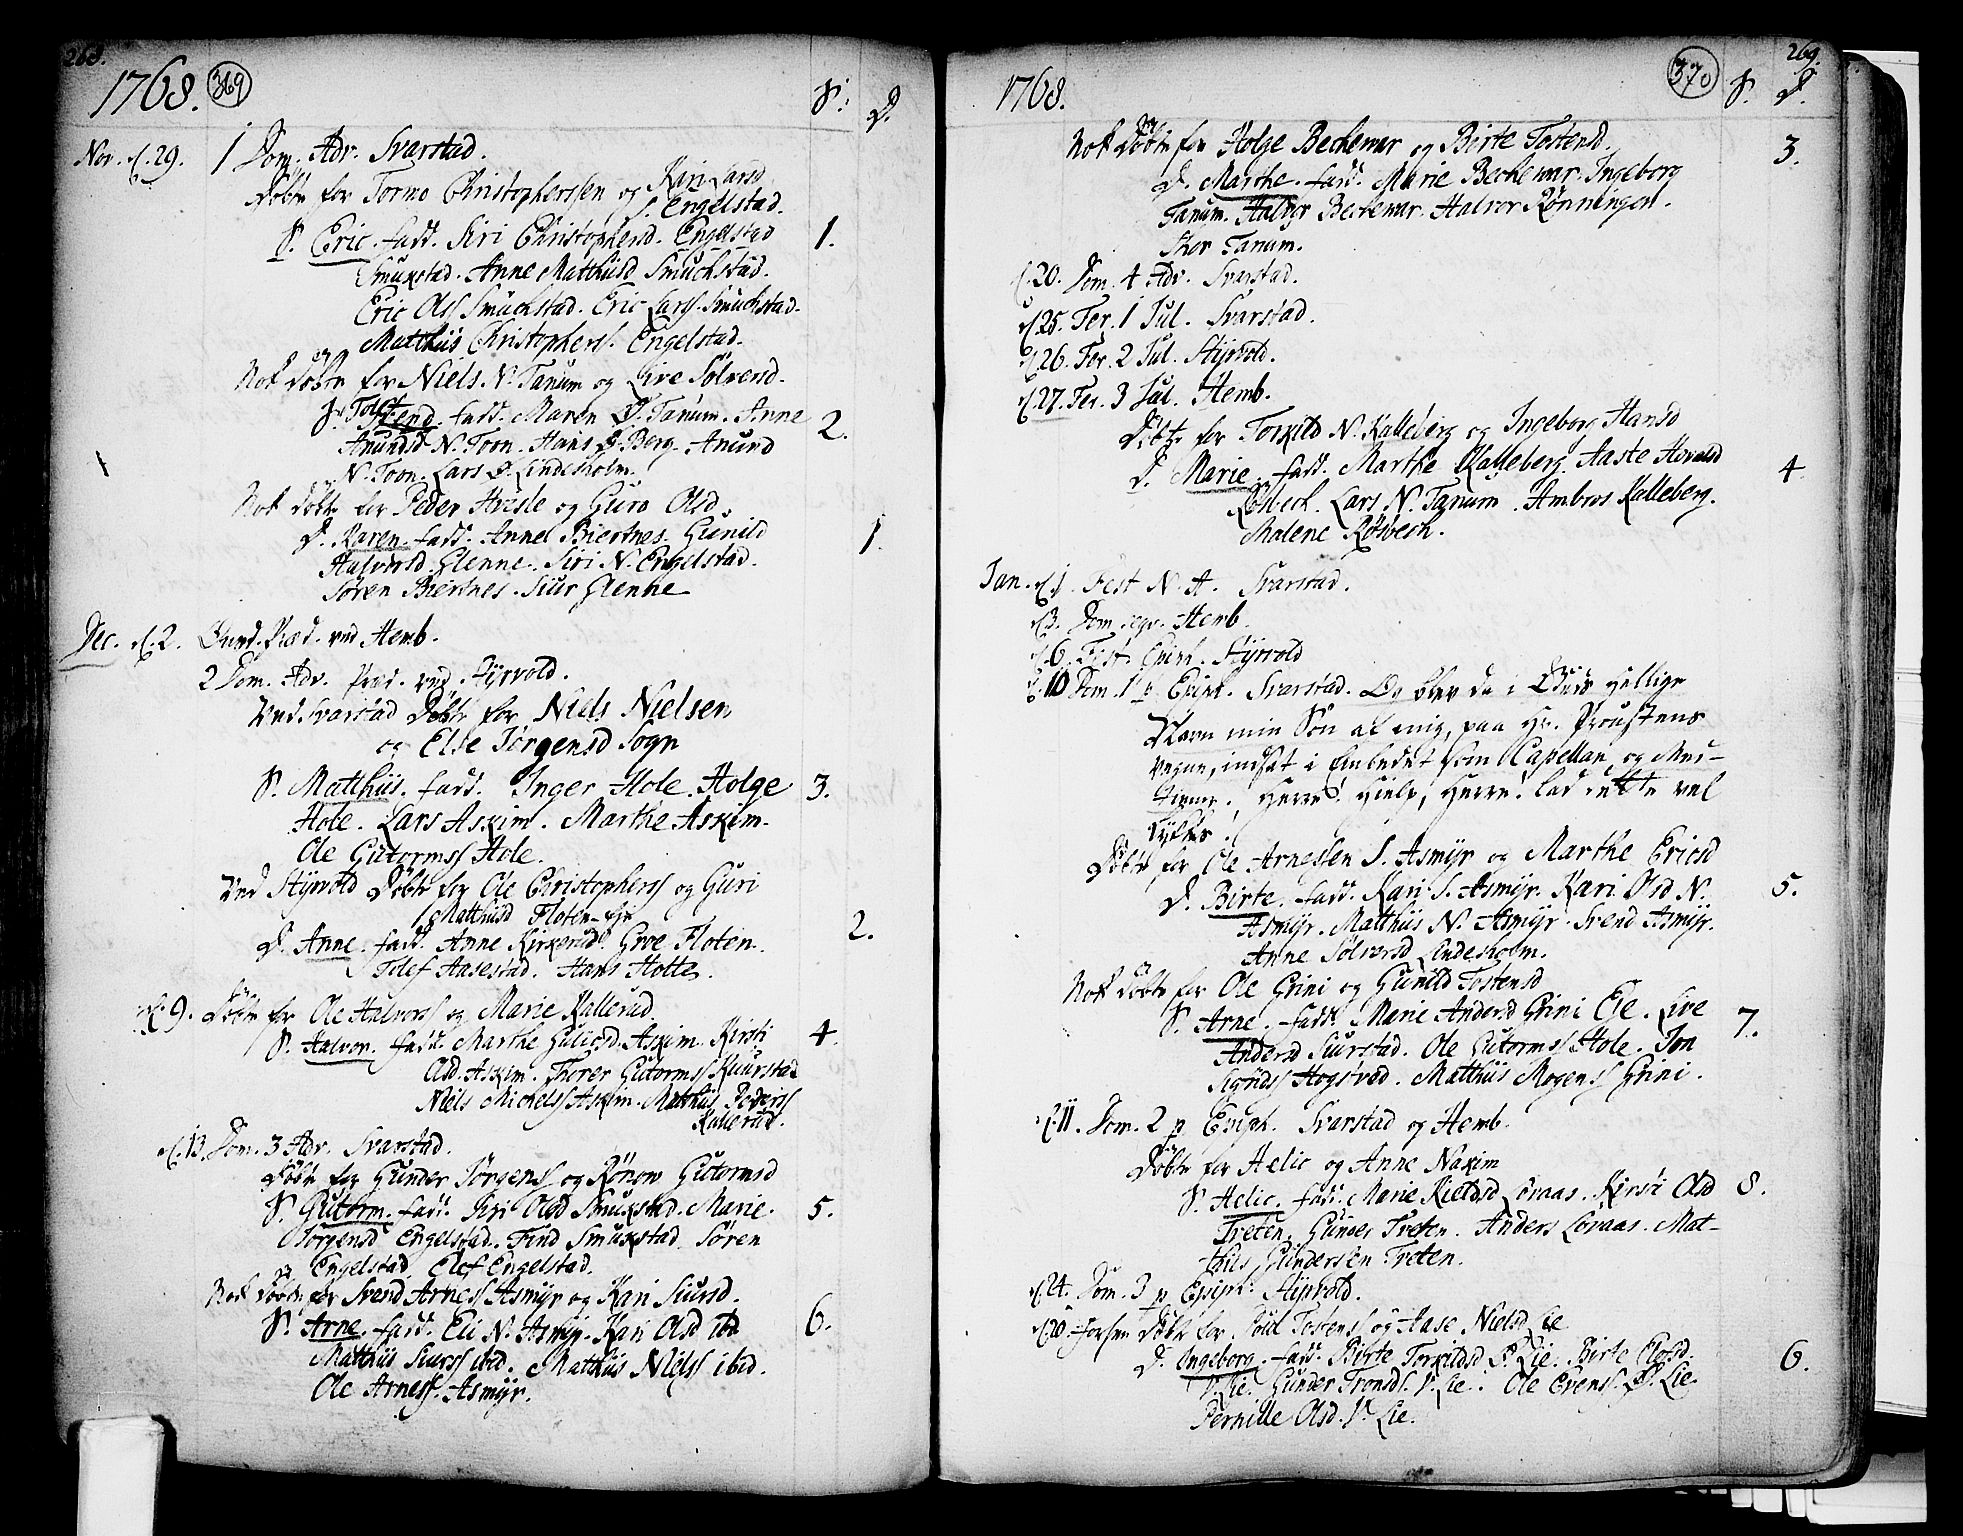 268.
1768. 369
S: D.
Nov. d. 29. 1 Dom. Adv. Svarstad.
Döbt for Tormo Christophersen og Kari Larsd
S. Engelstad.
S. Eric. fadd. Siri Christophersd. Engelstad 1.
Smukstad. Anne Matthisd Smuchstad.
Eric Olss Smuchstad. Eric Larss. Smuchstad.
Matthiis Christopherss. Engelstad.
Nok döbt for Niels N. Tanum og Live Sølversd.
S. Tolfsend. fadd. Maren Ø. Tanum. Anne 2.
Anundsd N. Toon. Hans Ø. Berg. Anund
N. Toon. Lars Ø. Lindesholm.
Nok döbt for Peder Hvisle og Guro Olsd.
D. Karen. fadd. Anne Biertnes. Gunild 1.
Halvorsd. Glenne. Siri N. Engelstad.
Søren Biertnes. Siur Glenne
Dec. d. 2. Præd. ved Hemb.
2 Dom. Adv. Præd. ved Styrvold.
Ved Svarstad Døbt for Niels Nielsen
og Else Jørgensd Sogn
S. Matthiis. fadd. Inger Hole. Holge 3.
Hole. Lars Askim. Marthe Askim.
Ole Gutormss Hole.
Ved Styrvold Døbt for Ole Christopherss og Guri
Matthiisd Floten-eje
D. Anne. fadd. Anne Kirkerud. Groe Floten. 2.
Tolef Aasestad. Hans Holte.
d. 9. Döbt for Ole Halvorss og Marie Kallerud.
S. Halvor. fadd. Marthe Gulicsd. Askim. Kirsti 4.
Olsd. Askim. Thorer Gutormss Ruurstad
Niels Michelss Askim. Matthis Pederss
Kallerud.
d. 13. Dom. 3 Adv. Svarstad.
Döbt for Gunder Jørgenss og Rønow Gutormsd
S. Gutorm. fadd. Siri Olsd Smukstad. Marie 5.
Jørgensd Engelstad. Find Smukstad. Søren
Engelstad. Olef Engelstad.
Nok döbt for Svend Arness Asmyr og Kari Siursd.
S. Arne. fadd. Eli N. Asmyr. Kari Olsd ibd 6.
Matthiis Siurss ibid. Matthiis Nielss ibid.
Ole Arness. Asmyr.
269.
1768. 370
S. D.
Nok Döbt for Holge Bechevar og Birte Tostensd. 3.
D. Marthe. fadd. Marie Bechevar. Ingeborg
Tanum. Halvor Bechevar. Halvor Rønningen.
Thor Tanum.
d. 20. Dom. 4 Adv. Svarstad.
d. 25. Fer. 1 Jul. Svarstad.
d. 26. Fer. 2 Jul. Styrvold.
d. 27. Fer. 3 Jul. Hemb.
Döbt for Torkild N. Kalleberg og Ingeborg Hansd
D. Marie. fadd. Marthe Kalleberg. Aaste 4.
Røsbech. Lars N. Tanum. Ambros Kalleberg.
Malene Røsbech.
Jan. d. 1. Fest N. A. Svarstad.
d. 3. Dom. seqv. Hemb.
d. 6. Fest. Epiph. Styrvold
d. 10 Dom. 1 p. Epiph. Svarstad. Og blev da i Guds hellige
Navn min Søn af mig, paa Hr. Proustens
Vegne, indsat i Embedet som Capellan, og Med-
tiener. Herre! hielp, Herre! lad dette vel
lykkes!
Döbt for Ole Arnessen S. Asmyr og Marthe Ericsd
D. Birte. fadd. Kari S. Asmyr. Kari Olsd N. 5.
Asmyr. Matthiis N. Asmyr. Svend Asmyr.
Anne Sølversd Lindesholm.
Nok döbt for Ole Grini og Gunild Tostensd
S. Arne. fadd. Marie Andersd Grini Eie. Live 7.
Andersd Siurstad. Ole Gutormss Hole. Jon
Sigudss Hogstvad. Matthiis Mogenss Grini.
d. 11. Dom. 2 p. Epiph. Svarstad og Hemb.
Döbt for Helic og Anne Naxim
S. Helic. fadd. Marie Kieldsd Loraas. Kirsti Olsd 8.
Treten. Gunder Treten. Anders Loraas. Mat-
this Gundersen Treten.
d. 24. Dom. 3 p. Epiph. Styrvold.
Döbt for Poul Tostenss og Aase Nielsd Lie
D. Ingeborg. fadd. Birte Torkildsd S. Lie. Birte Olefsd. 6.
V. Lie. Gunder Tronsds. V. Lie. Ole Evenss. Ø. Lie.
Pernille Olsd. V. Lie.